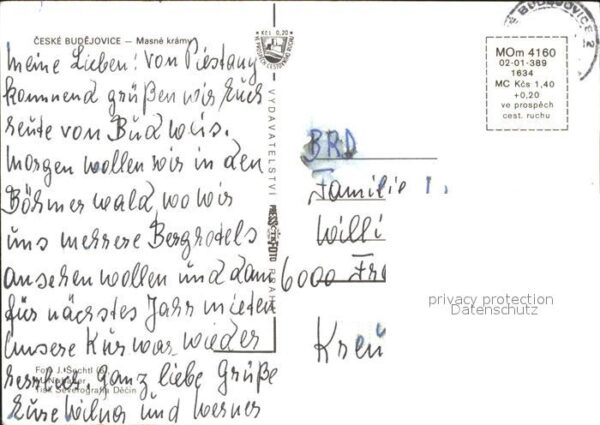 ČESKÉ BUDĚJOVICE — Masné krámy
KČS 0,20
VE PROSPĚCH CESTOVNÍHO RUCHU
BUDĚJOVICE 2
MOm 4160
02-01-389
1634
MC Kčs 1,40
+0,20
ve prospěch
cest. ruchu
Meine Lieben! Von Piestany
kommend grüßen wir Euch
heute von Budweis.
Morgen wollen wir in den
Böhmerwald, wo wir
uns mehrere Berghotels
ansehen wollen und dann
für nächstes Jahr mieten
Unsere Kur war wieder
herrlich. Ganz liebe Grüße
Eure Hilner und Werner
VYDAVATELSTVÍ
PRESSFOTO
PRAHA
BRD
Familie
Willi
6000 Fra
Kreu
privacy protection
Datenschutz
Foto J. Šechtl
Tisk Severografia Děčín